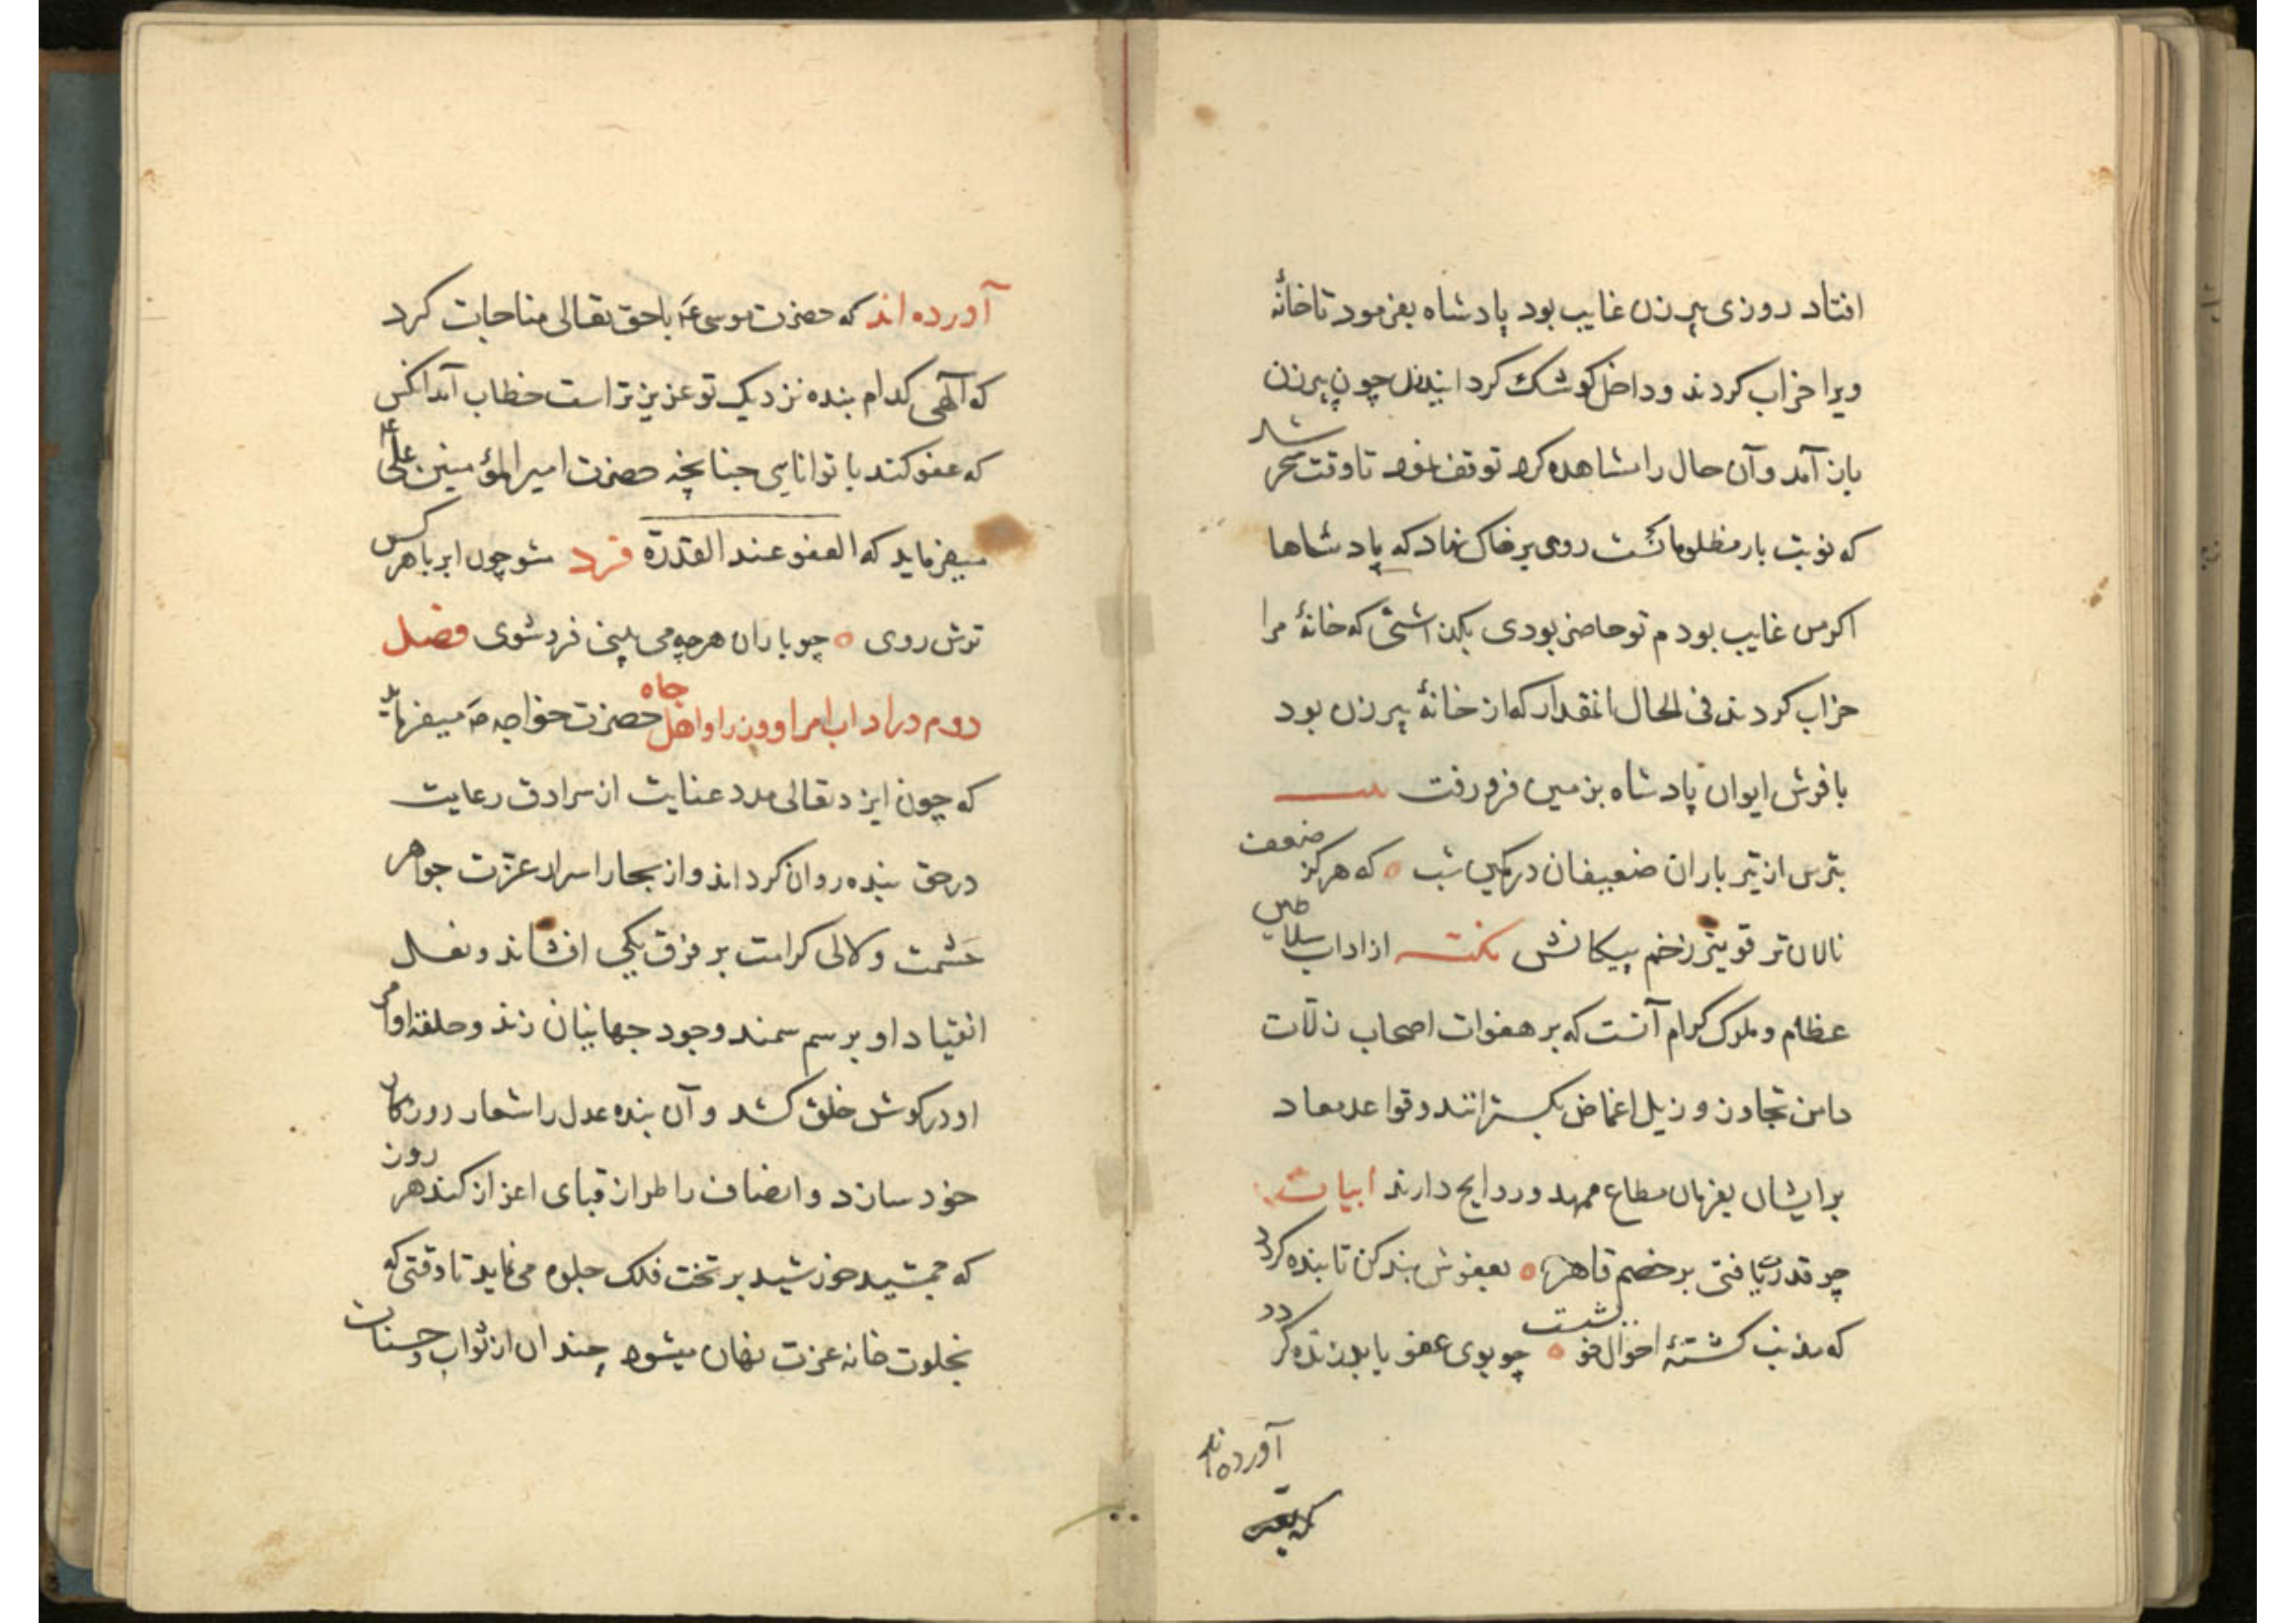 افتاد روزی پیرزن غایب بود پادشاه بفرمود تا خانهٔ
ویرا خراب کردند و داخل کوشک کردانیدند چون پیرزن
باز آمد و آن حال را مشاهده کرد توقف نمود تا وقت سحر شد
که نوبت بار مظلومانست روی بر خاک نهاد که پادشاها
اکر من غایب بودم تو حاضر بودی که خانهٔ مرا
خراب کردند فی الحال انمقدار که از خانهٔ پیرزن بود
با فرش ایوان پادشاه بزمین فرو رفت
بترس از تیر باران ضعیفان در کمین شب ه که هرکز ضعف
نالان تر قویتر زخم پیکانش نکته از اداب سلاطین
عظام و ملوک کرام آنست که بر هفوات اصحاب زلّات
دامن تجاوز و زیل اغماض بکسترانند و قواعد معاد
بر ایشان بفرمان مطاع ممهد و روایج دارند ابیات
چو قدرت یافتی بر خصم قاهر ه بعفوش بند کن تا بنده کردد
که مذنب کشتهٔ احوال خو ه چو بوی عفو یابد زنده کردد
آورده‌اند
آورده اند که حضرت موسی عَ با حق تعالی مناجات کرد
که آلهی کدام بنده نزدیک تو عزیزتر است خطاب آمد انکس
که عفو کند با توانایی چنانچه حضرت امیرالمؤمنین علی عَ
میفرماید که العفو عند القدرة فرد مشو چون ابر با هر کس
ترش روی ه چو باران هر چه می بینی فرد شوی فصل
دوم در اداب امرا و وزرا و اهل جاه حضرت خواجه صَ میفرماید
که چون ایزد تعالی مدد عنایت از سرادق رعایت
در حق بنده روان کرداند و از بحار اسرار عزّت جواهر
حشمت و لالی کرامت بر فرق یکی افشاند و نعل
انقیاد او بر سم سمند وجود جهانیان زند و حلقه اوامر
او در کوش خلق کشد و آن بنده عدل را شعار روزکار
خود سازد و انصاف را طراز قبای اعزاز کند هر روز
که جمشید خورشید بر تخت فلک جلوه می نماید تا وقتی که
بخلوت خانه عزت نهان میشود چندان از ثواب و حسنات